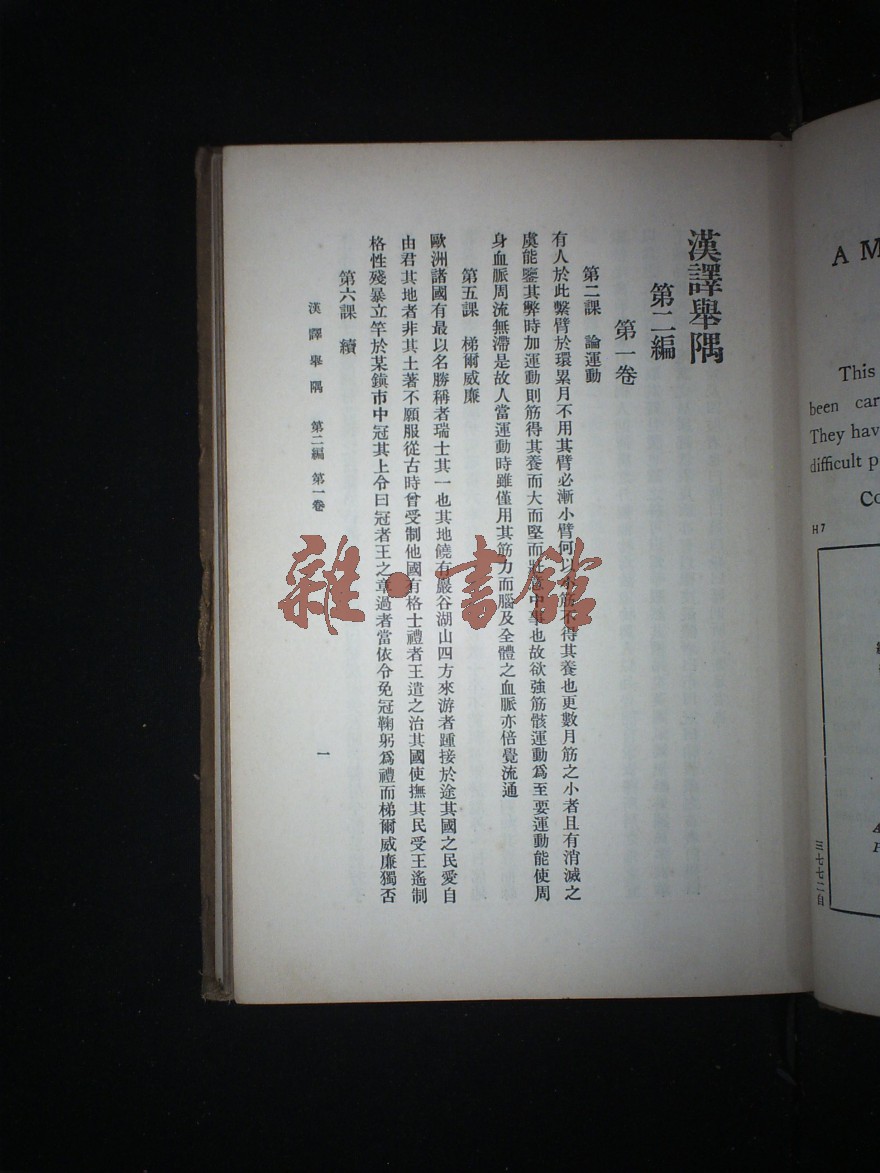 漢譯舉隅
第二編
第一卷
第二課 論運動
有人於此繫臂於環累月不用其臂必漸小臂何以小筋不得其養也更數月筋之小者且有消滅之
虞能鑒其弊時加運動則筋得其養而大而堅而壯意中事也故欲強筋骸運動爲至要運動能使周
身血脈周流無滯是故人當運動時雖僅用其筋力而腦及全體之血脈亦倍覺流通
第五課 梯爾威廉
歐洲諸國有最以名勝稱者瑞士其一也其地饒有巖谷湖山四方來游者踵接於途其國之民愛自
由君其地者非其土著不願服從古時曾受制他國有格士禮者王遣之治其國使撫其民受王遙制
格性殘暴立竿於某鎮市中冠其上令曰冠者王之章過者當依令免冠鞠躬爲禮而梯爾威廉獨否
第六課 續
漢譯舉隅 第二編 第一卷
一
雜·書館
A M
This
been car
They have
difficult p
Co
H7
三七七二自